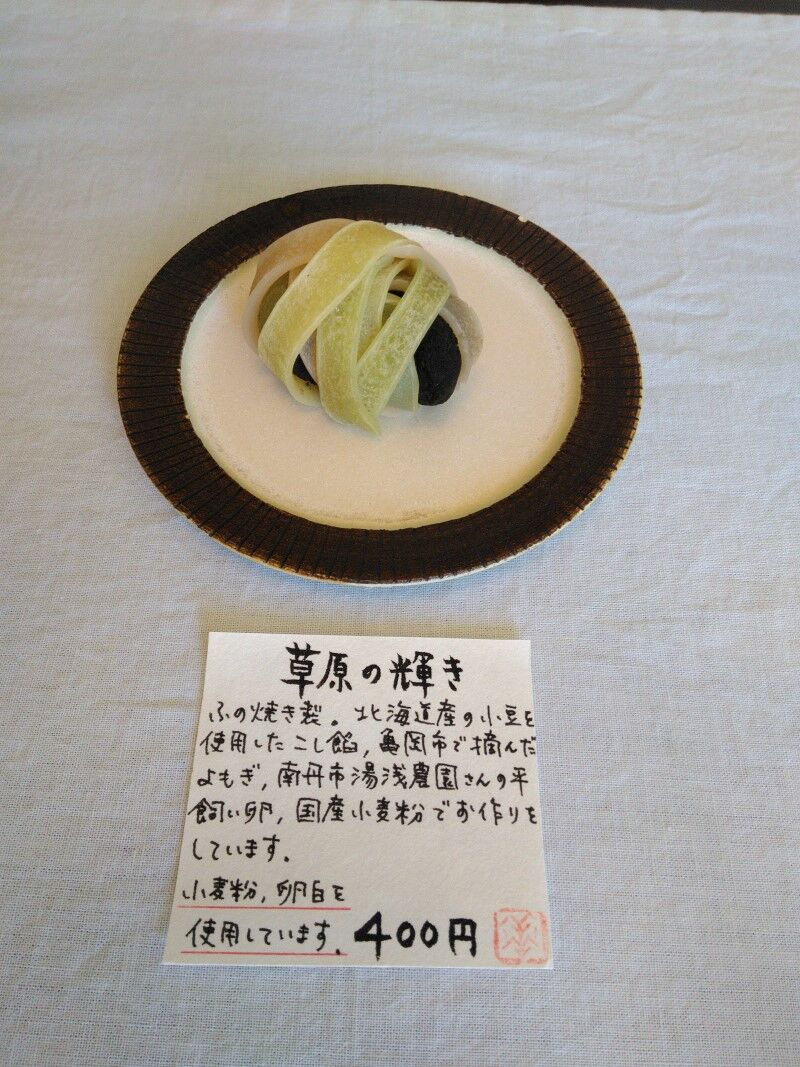 草原の輝き
ふの焼き製。北海道産の小豆を
使用したこし餡,亀岡市で摘んだ
よもぎ,南丹市湯浅農園さんの平
飼い卵,国産小麦粉でお作りを
しています。
小麦粉,卵白を
使用しています。400円